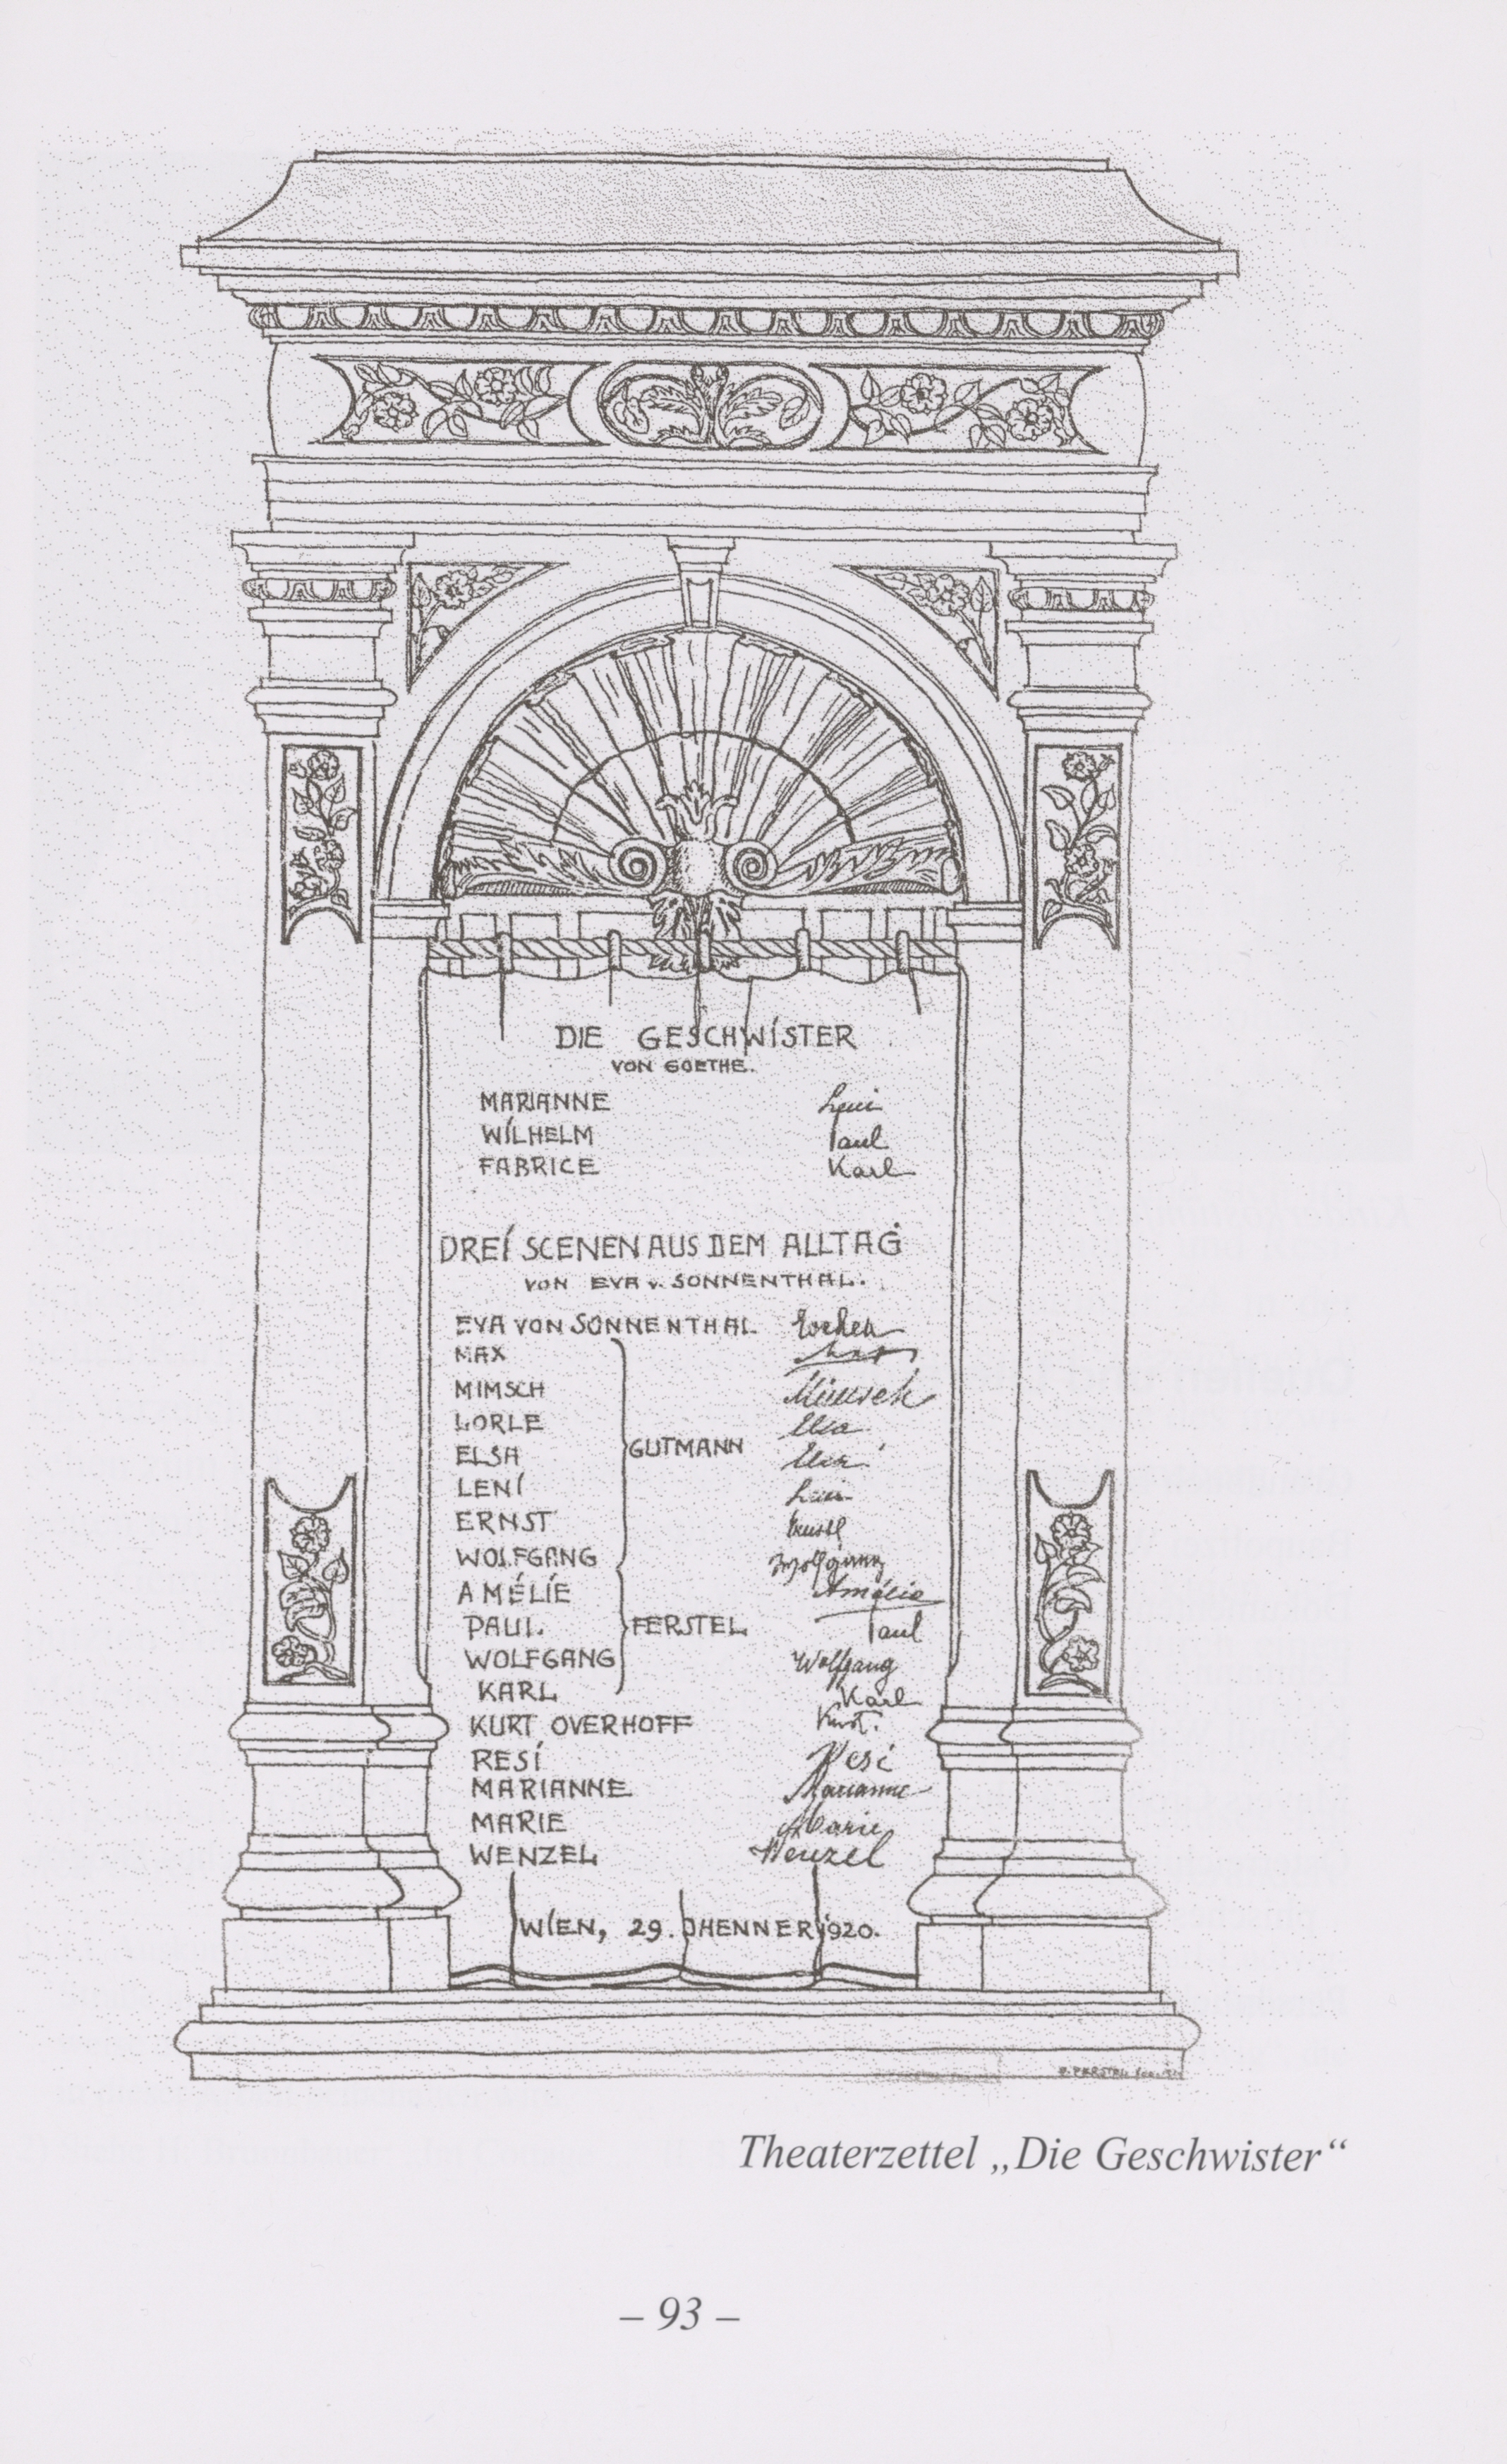 DIE GESCHWISTER
VON GOETHE.
MARIANNE Leni
WILHELM Paul
FABRICE Karl
DREI SCENEN AUS DEM ALLTAG
VON EVA v. SONNENTHAL.
EVA VON SONNENTHAL
MAX
MIMSCH Mimsch
LORLE
ELSA
GUTMANN
LENI Leni
ERNST Ernstl
WOLFGANG Wolfgang
AMÉLIE Amélie
PAUL Paul
FERSTEL
WOLFGANG Wolfgang
KARL Karl
KURT OVERHOFF Kurt.
RESI Resi
MARIANNE Marianne
MARIE Marie
WENZEL Wenzel
WIEN, 29. JHENNER 1920.
Theaterzettel „Die Geschwister“
– 93 –